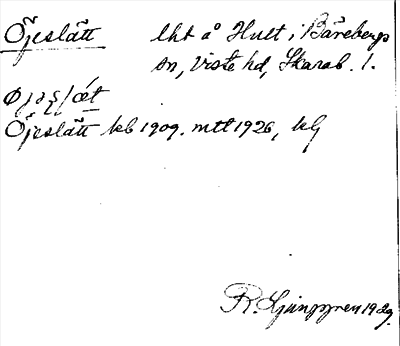 Öjeslätt lht å Hult i Bärebergs
sn, Viste hd, Skarab. l.
Öjeslätt kb 1909. mtl 1926, klj
R. Ljunggren 1929.